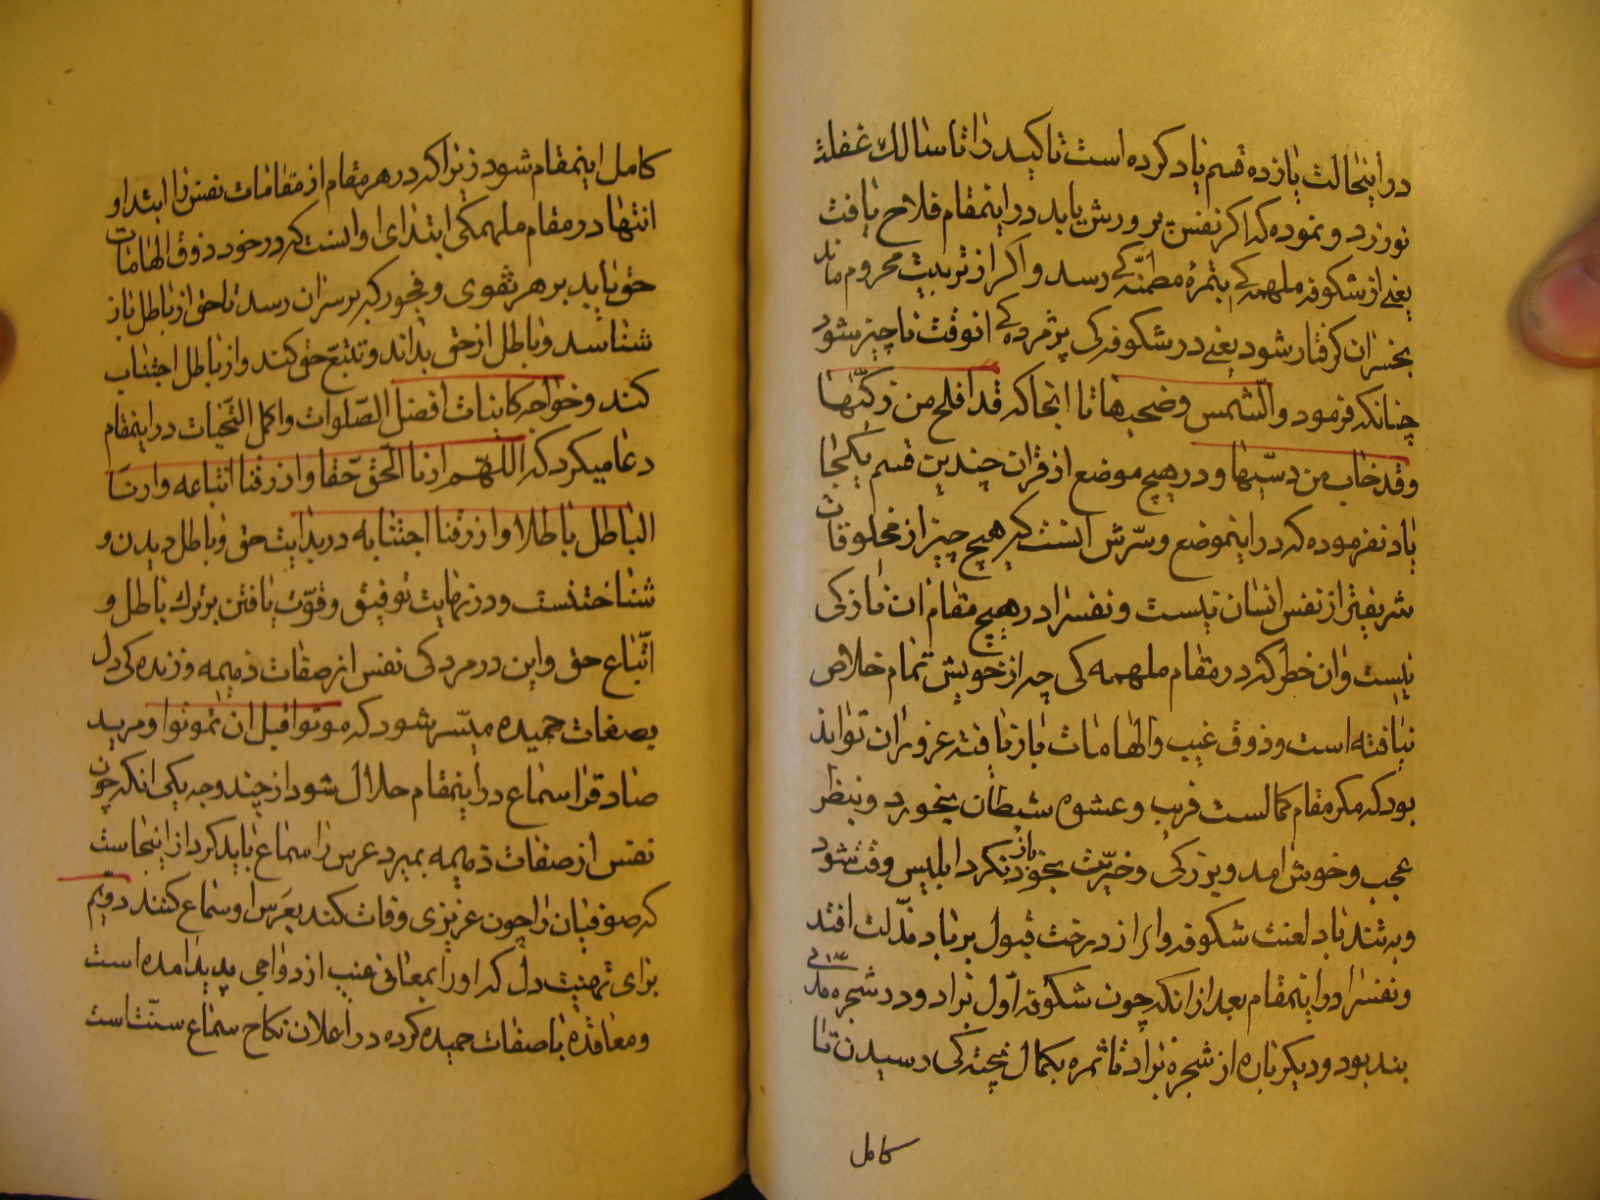 در اینحالت یازده قسم یاد کرده است تاکید را تا سالک غفلت
نورزد و نموده که اکر نفس پرورش یابد در اینمقام فلاح یافت
یعنی از شکوفه ملهمه کی بثمرهٔ مطمنّه کی رسد و اکر از تربیت محروم ماند
بخسران کرفتار شود یعنی در شکوفه کی پژمرده کی انوقت ناچیز شود
چنانکه فرمود والشمس وضحیها تا انجا که قد افلح من زکّٰیها
وقد خاب من دسّیها و در هیچ موضع از قران چندین قسم یکجا
یاد نفرموده که در اینموضع و سرّش انست که هیچ چیز از مخلوقات
شریفتر از نفس انسان نیست و نفسرا در هیچ مقام ان نازکی
نیست و ان خطر که در مقام ملهمه کی چه از خویش تمام خلاص
نیافته است و ذوق غیب و الهامات بازیافته غرور ان تواند
بود که مکر مقام کمالست فریب و عشوه شیطان بخورد و بنظر
عجب و خوش امد و بزرکی و خیریّت بخود باز نکرد ابلیس وقت شود
و به تند باد لعنت شکوفه وار از درخت قبول بر باد مذّلت افتد
و نفسرا در اینمقام بعد از انکه چون شکوفه اوّل بزاد و در شجره
بند بود و دیکر باره از شجره بزاد تا ثمره بکمال پخته کی رسیدن تا
کامل
کامل اینمقام شود زیرا که در هر مقام از مقامات نفس را ابتدا و
انتها در مقام ملهمکی ابتدای او انست که در خود ذوق الهامات
حق یابد بر هر تقوی و فجور که بر سر ان رسد تا حق از باطل باز
شناسد و باطل از حق بداند و تتبّع حق کند و از باطل اجتناب
کند و خواجه کاینات افضل الصّلوات و اکمل التّحیات در اینمقام
دعا میکرد که اللهّم ارنا الحّق حّقا وارزقنا اتباعه وارنا
الباطل باطلا وارزقنا اجتنابه در بدایت حق و باطل دیدن و
شناختنست و در نهایت توفیق و قوّت یافتن بر ترک باطل و
اتّباع حق و این در مردکی نفس از صفات ذمیمه و زنده کی دل
بصفات حمیده میسّر شود که موتوا قبل ان تموتوا و مرید
صادقرا سماع در اینمقام حلال شود از چند وجه یکی انکه چون
نفس از صفات ذمیمه بمیرد عرس را سماع باید کرد از اینجاست
که صوفیان را چون عزیزی وفات کند بعرس او سماع کنند دویّم
برای تهنیت دل که او را بمعانی غیب ازدواجی پدید امده است
و معاقده با صفات حمیده کرده در اعلان نکاح سماع سنّت است